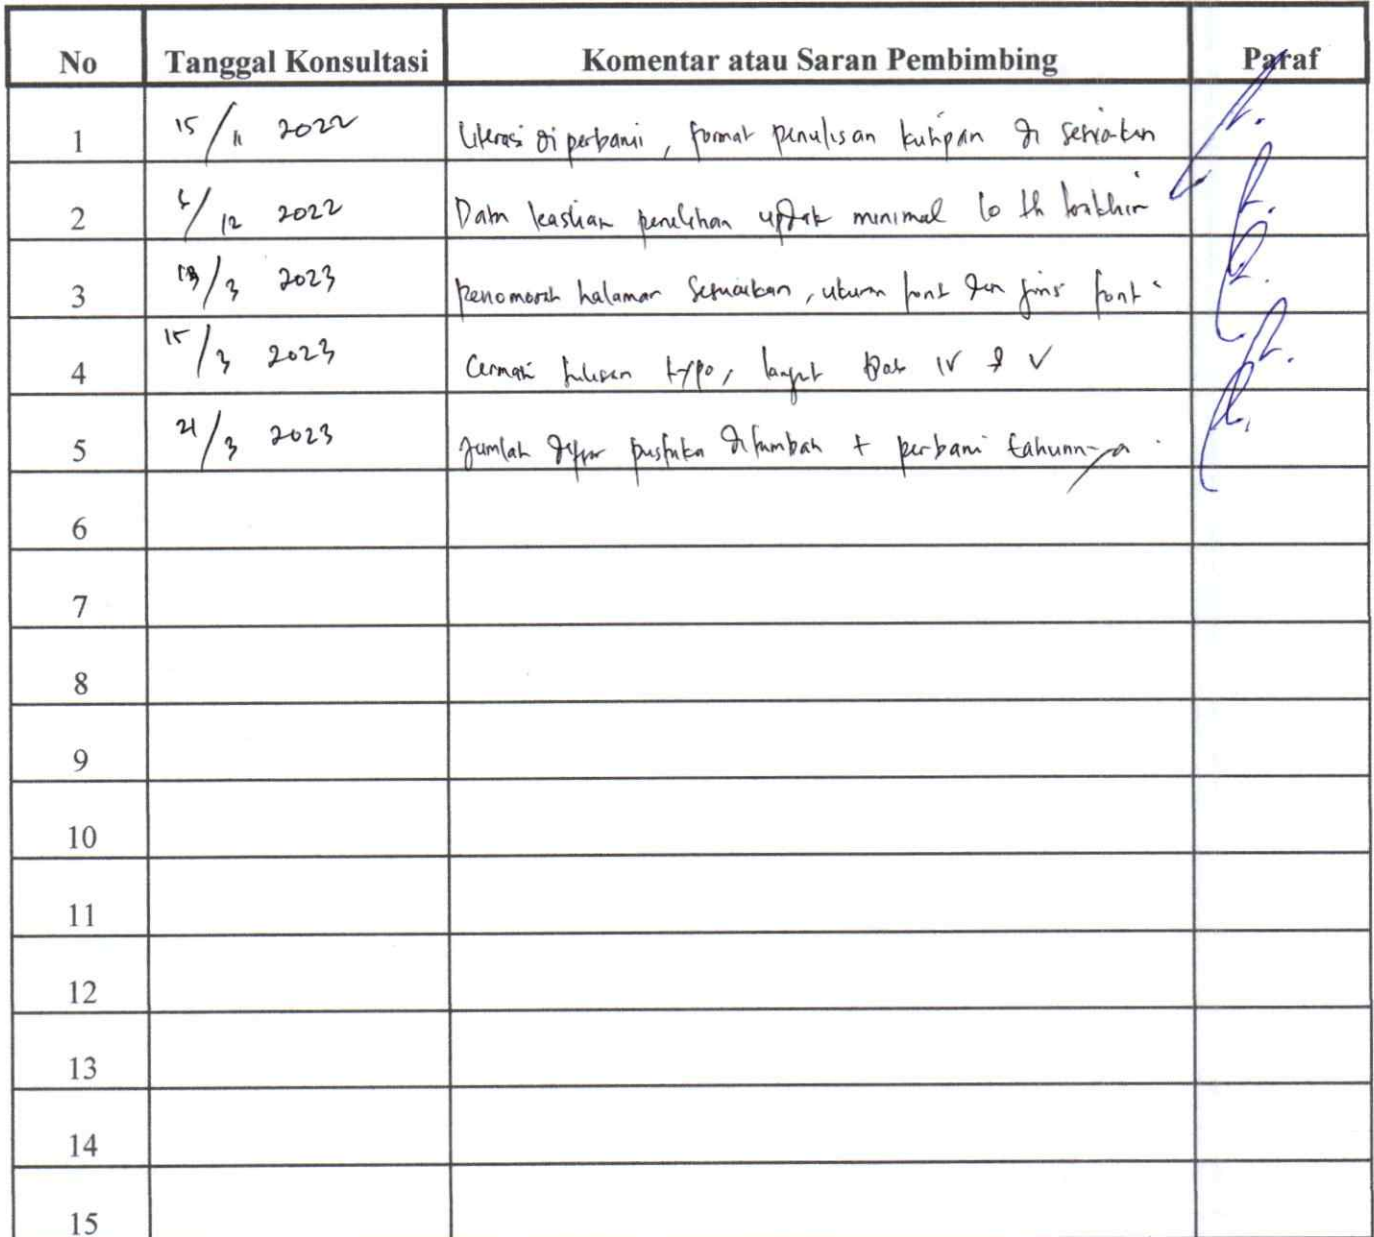 No Tanggal Konsultasi Komentar atau Saran Pembimbing Paraf
1 15/11 2022 Literasi diperbarui, format penulisan kutipan di sesuaikan
2 /12 2022 Data keaslian penelitian update minimal 10 th terakhir
3 /3 2023 penomoran halaman sesuaikan, ukuran font dan jenis font
4 15/3 2023 Cermati tulisan typo, lanjut Bab IV & V
5 21/3 2023 Jumlah daftar pustaka ditambah + perbarui tahunnya
6
7
8
9
10
11
12
13
14
15